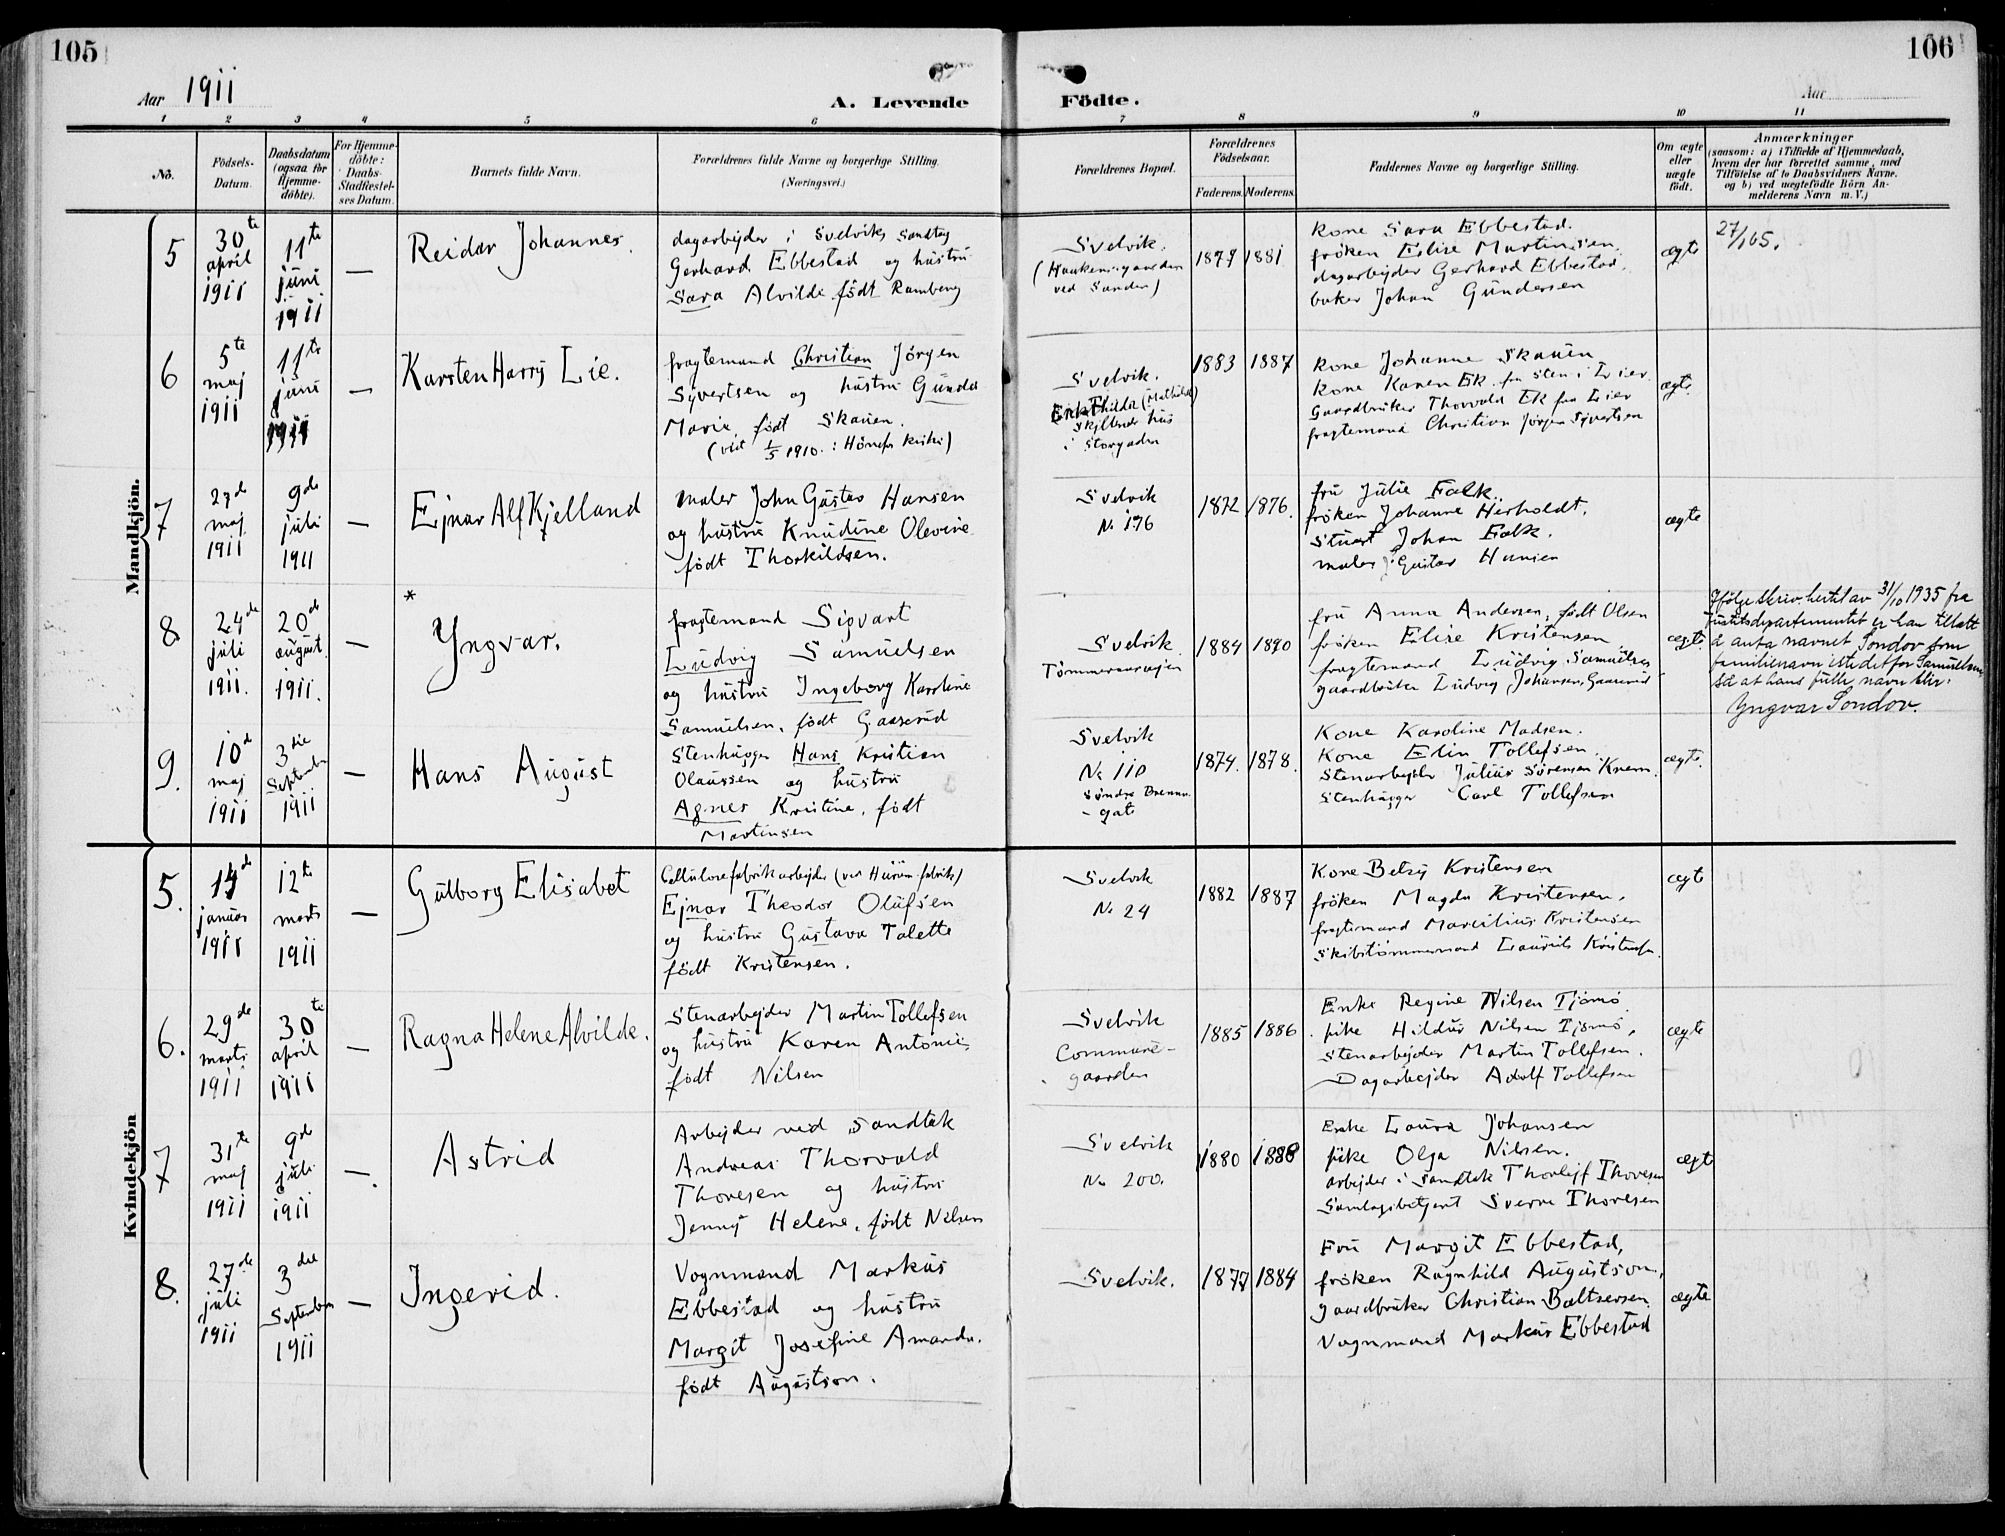 105
106
Aar 1911
A. Levende Födte.
Aar
1 2 3 4 5 6 7 8 9 10 11
No.
Födsels-
Datum.
Daabsdatum
(ogsaa for
Hjemme-
döbte).
For Hjemme-
döbte:
Daabs-
Stadfæstel-
ses Datum.
Barnets fulde Navn.
Forældrenes fulde Navne og borgerlige Stilling.
(Næringsvei.)
Forældrenes Bopæl.
Forældrenes
Födselsaar.
Faderens. Moderens.
Faddernes Navne og borgerlige Stilling.
Om ægte
eller
uægte
födt.
Anmærkninger
(saasom: a) i Tilfælde af Hjemmedaab,
hvem der har forrettet samme, med
Tilföielse af to Daabsvidners Navne.
og b) ved uegtefödte Börn An-
melderens Navn m. V.)
Mandkjön.
5
30te
april
1911
11te
juni
1911
—
Reidar Johannes.
dagarbejder i Svelviks Sandtag
Gerhard Ebbestad og hustru
Sara Alvilde født Ramberg
Svelvik.
ved Sanden)
1879 1881
Kone Sara Ebbestad.
frøken Elise Martinsen.
dagarbejder Gerhard Ebbestad.
baker Johan Gundersen
ægte
27/1 65.
6
5te
maj
1911
11te
juni
1911
—
Karsten Harry Lie.
fragtemand Christian Jörgen
Syvertsen og hustru Gunda
Marie født Skauen.
(vid 1/5 1910. i Hönefos kirke)
Svelvik.
hus
i Storgaden
1883 1887
Kone Johanne Skauen
Kone Karen Ek fra Sten i Lier
Gaardbruker Thorvald Ek fra Lier
fragtemand Christian Jörgen Syvertsen
ægte.
7
maj
1911
9de
juli
1911
—
Ejnar Alf Kjelland
maler John Gustav Hansen
og hustru Knudine Olevine
født Thorkildsen.
Svelvik
No 176
1872 1876.
fru Julie Falk.
frøken Johanne Herholdt.
Stuert Johan Falk.
maler J Gustav Hansen
ægte
8
24de
juli
1911.
20de
august.
1911.
—
*
Yngvar.
fragtemand Sigvart
Ludvig Samuelsen
og hustru Ingeborg Karoline
Samuelsen, født Gaaserud
Svelvik
1884 1890
fru Anna Andersen, født Olsen
frøken Elise Kristensen
fragtemand Ludvig Samuelsen
gaardbruker Ludvig Johansen, Gaaserud
ægte
Ifølge skriv. hertil av 31/10 1935 fra
Justitsdepartementet er han tillatt
å anta navnet Sondov som
familienavn istedetfor Samuelsen,
så at hans fulle navn blir:
Yngvar Sondov.
9.
10de
maj
1911
3die
September
1911
—
Hans August
Stenhugger Hans Kristian
Olaussen og hustru
Agnes Kristine, født
Martinsen
Svelvik
No 110
Søndre Brenna
- gate
1874. 1878.
Kone Karoline Madsen.
Kone Elin Tollefsen.
Stenarbejder Julius Sørensen
Stenhugger Carl Tollefsen
ægte.
Kvindekjön
5.
14de
januar
1911
12te
marts
1911
—
Gulborg Elisabet
Cellulosefabrikarbejder (ved Hurum fabrik)
Ejnar Theodor Olufsen
og hustru Gustava Talette
født Kristensen.
Svelvik
No 24
1882 1887
Kone Betsy Kristensen
frøken Magda Kristensen.
fragtemand Marcilius Kristensen
Skibstömmermand Laurits Kristensen.
ægte
6.
29de
marts
1911
30te
april
1911
—
Ragna Helene Alvilde.
Stenarbejder Martin Tollefsen
og hustru Karen Antonie,
født Nilsen
Svelvik
Commune-
gaarden
1885 1886
Enke Regine Nilsen Tjømø.
pike Hildur Nilsen Tjømø,
Stenarbejder Martin Tollefsen.
Dagarbejder Adolf Tollefsen
ægte
7
31te
maj
1911
9de
juli
1911
—.
Astrid
Arbejder ved Sandtak
Andreas Thorvald
Thoresen og hustru
Jenny Helene, født Nilsen
Svelvik
No 200.
1880 1888
Enke Laura Johansen
pike Olga Nilsen.
arbejder i Sandtak Thorlejf Thoresen
Samlagsbetjent Sverre Thoresen
ægte
8.
27de
juli
1911
3die
September
1911
—
Ingerid.
Vognmand Markus
Ebbestad og hustru
Margit Josefine Amanda.
født Augustson.
Svelvik.
1877 1884
Fru Margit Ebbestad,
frøken Ragnhild Augustson,
gaardbruker Christian Baltsersen.
Vognmand Markus Ebbestad
ægte